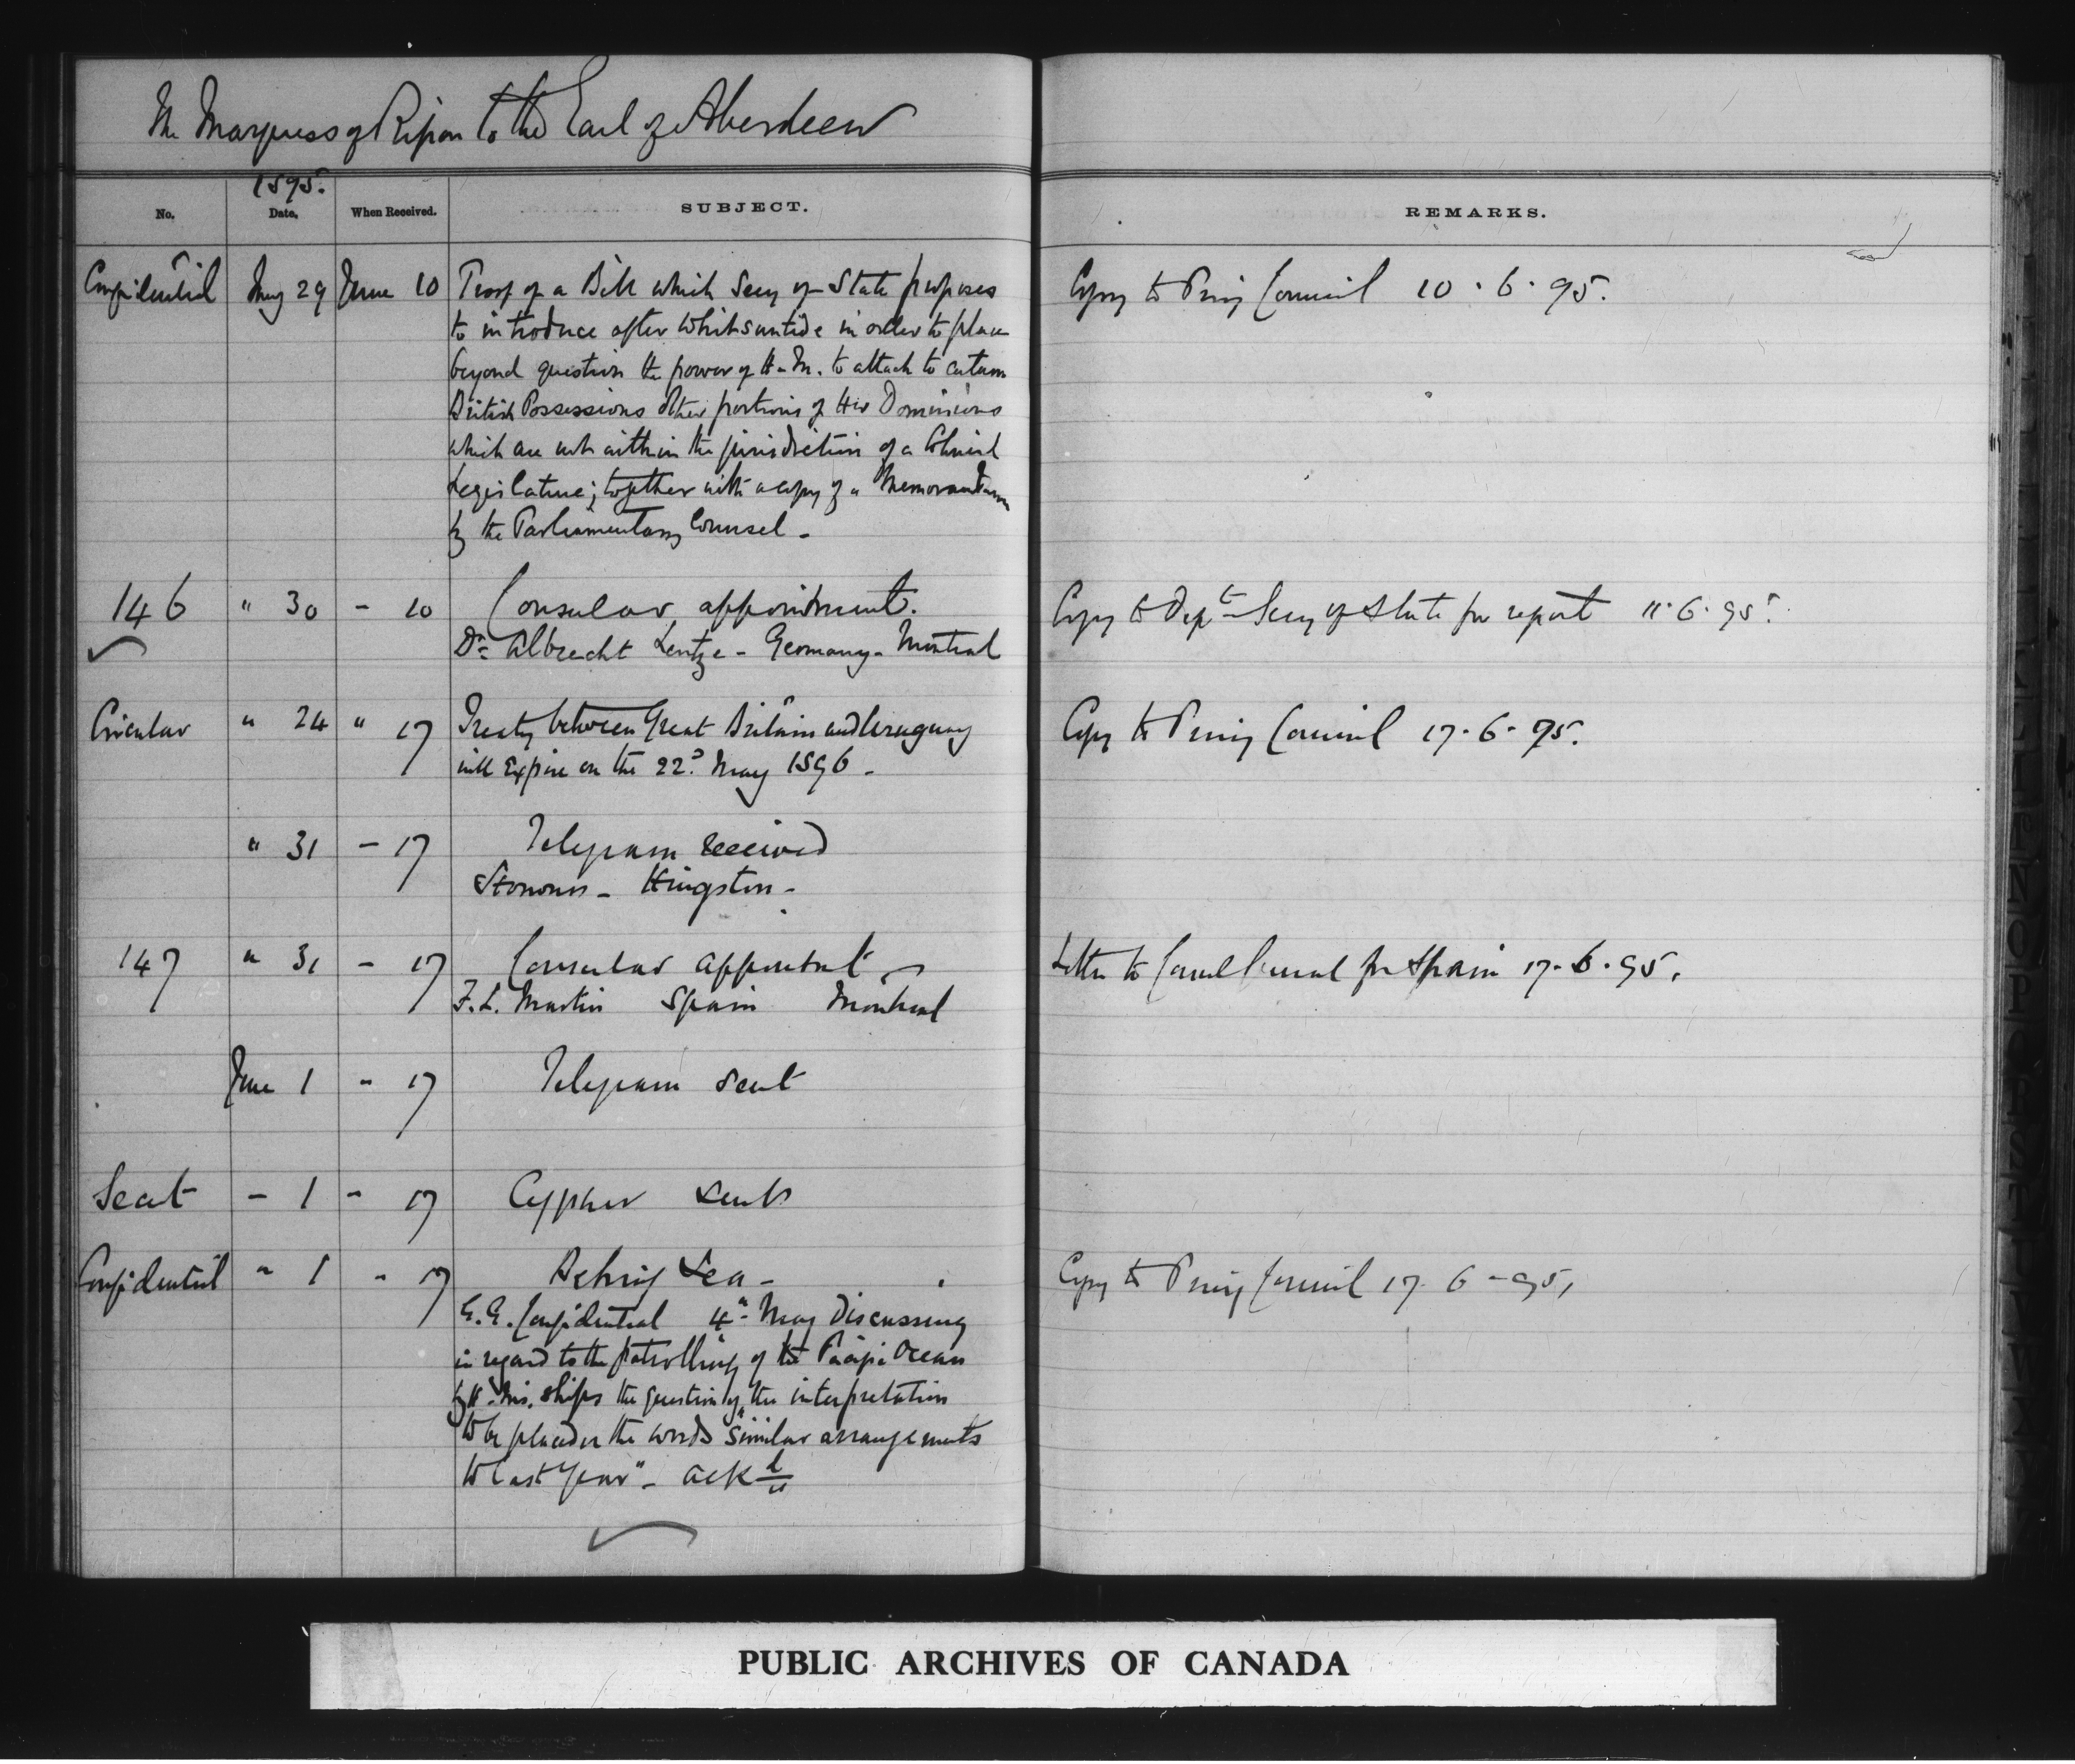 The Marquess of Ripon to the Earl of Aberdeen
1895.
No. Date. When Received. SUBJECT. REMARKS.
Confidential May 29 June 10 Proof of a Bill which Secy of State proposes Copy to Privy Council 10.6.95.
to introduce after Whitsuntide in order to place
beyond question the power of H.M. to attach to certain
British Possessions other portions of Her Dominions
which are not within the jurisdiction of a Colonial
Legislature; together with a copy of a Memorandum
by the Parliamentary Counsel -
146 " 30 - 10 Consular appointment. Copy to Dept Secy of State for report 11.6.95.
Dr Albrecht Lentze - Germany - Montreal
Circular " 24 " 17 Treaty between Great Britain and Uruguay Copy to Privy Council 17.6.95.
will Expire on the 22d May 1896 -
" 31 - 17 Telegram received
- Kingston -
147 " 31 - 17 Consular appointmt - Letter to Consul General for Spain 17.6.95.
F. L. Martin Spain Montreal
June 1 - 17 Telegram sent
Secret - 1 - 17 Cypher sent
Confidential " 1 - 17 Behring Sea - Copy to Privy Council 17.6-95,
G.G. Confidential 4th May Discussing
in regard to the patrolling of the Pacific Ocean
by H. Ms. ships the question of the interpretation
to be placed on the words "Similar arrangements
to last year" - ackd
PUBLIC ARCHIVES OF CANADA